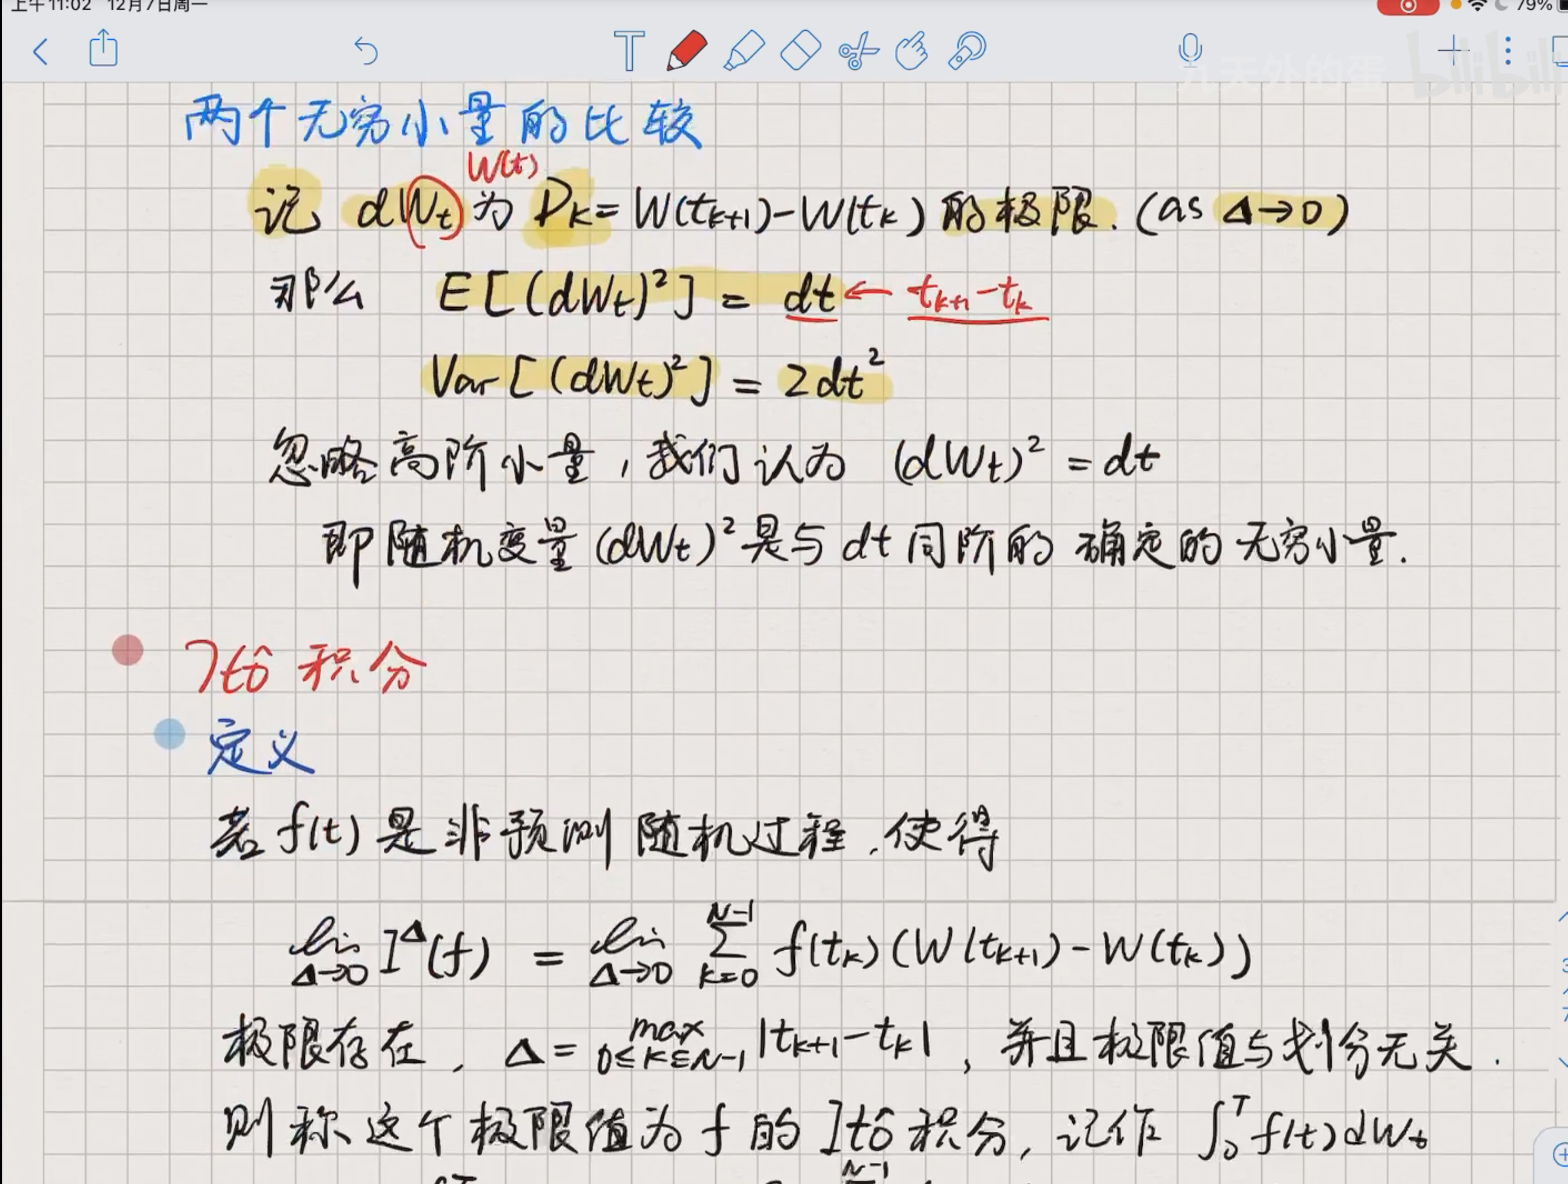 上午11:02 12月7日周一
79%
九天外的
bilibili
两个无穷小量的比较
W(t)
记 dWt 为 Dk = W(tk+1)-W(tk) 的极限. (as Δ→0)
那么 E[(dWt)²] = dt ← tk+1-tk
Var[(dWt)²] = 2dt²
忽略高阶小量, 我们认为 (dWt)² = dt
即随机变量 (dWt)² 是与 dt 同阶的 确定的 无穷小量.
Itô 积分
定义
若 f(t) 是非预测随机过程, 使得
lim Δ→0 I^Δ(f) = lim Δ→0 Σ k=0 N-1 f(tk)(W(tk+1)-W(tk))
极限存在, Δ = max 0≤k≤N-1 |tk+1-tk|, 并且极限值与划分无关.
则称这个极限值为 f 的 Itô 积分, 记作 ∫₀ᵀ f(t)dWt
N-1